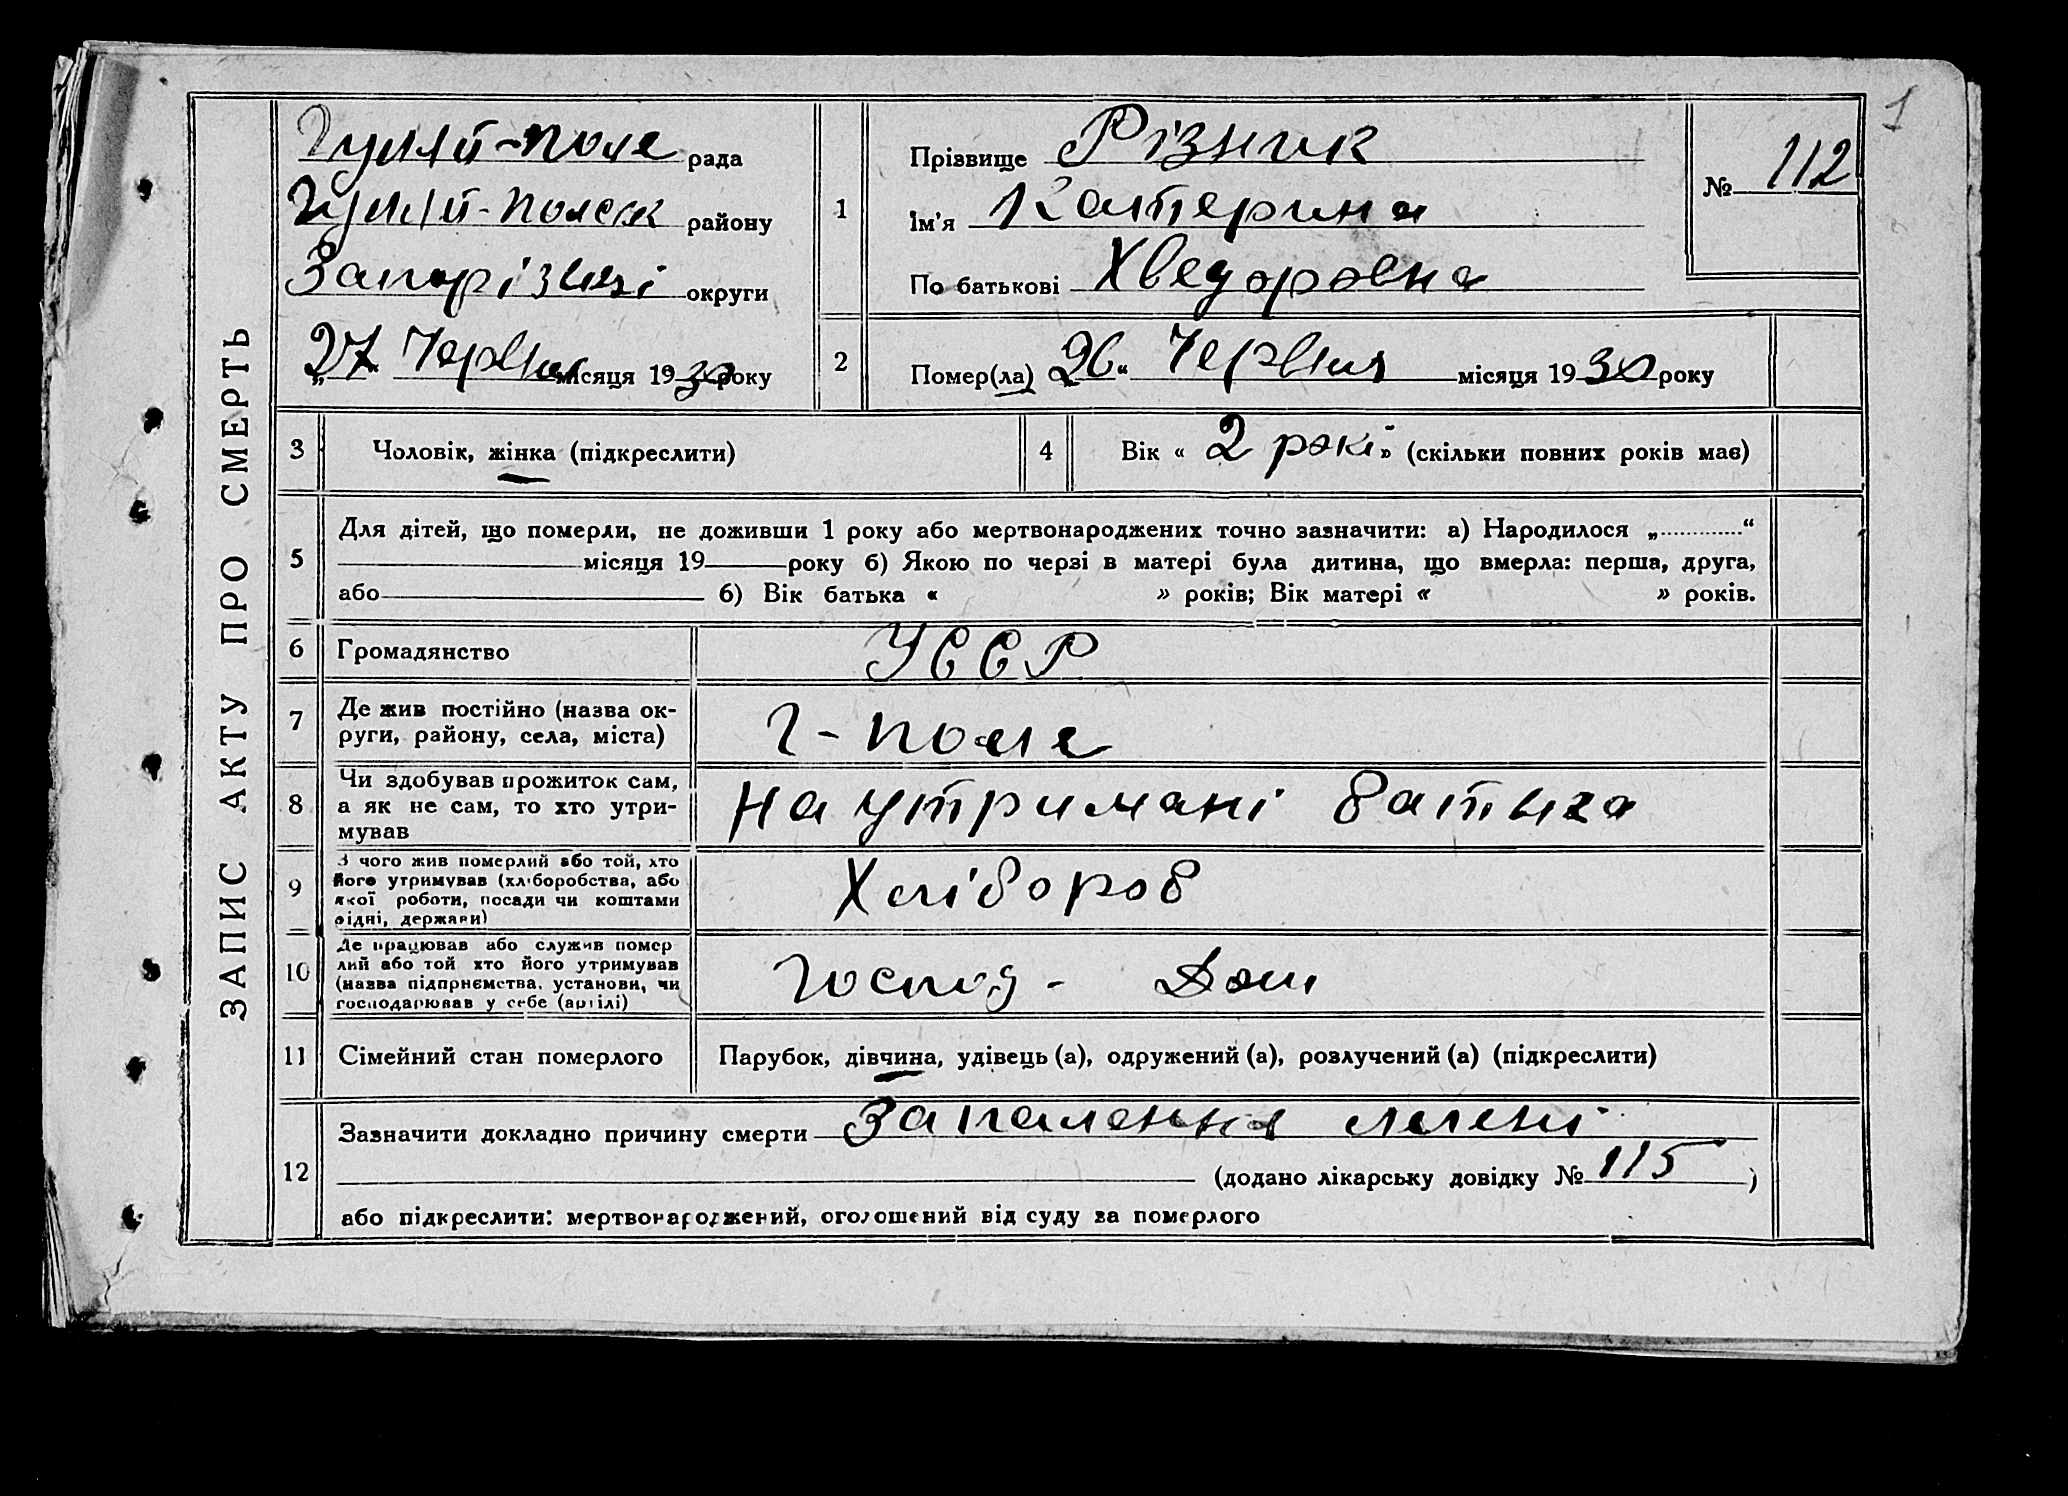 1
ЗАПИС АКТУ ПРО СМЕРТЬ
Гуляй-поле рада
Гуляй-Польск району
Запорізькі округи
„27“ Червня місяця 1930 року
1
Прізвище Різник
Ім'я Катерина
По батькові Хведоровна
№ 112
2
Помер(ла) 26“ Червня місяця 1930 року
3
Чоловік, жінка (підкреслити)
4
Вік « 2 рокі » (скільки повних років має)
5
Для дітей, що померли, не доживши 1 року або мертвонароджених точно зазначити: а) Народилося „.............“
місяця 19 року б) Якою по черзі в матері була дитина, що вмерла: перша, друга,
або б) Вік батька « » років; Вік матері « » років.
6
Громадянство
УССР
7
Де жив постійно (назва ок-
руги, району, села, міста)
Г-поле
8
Чи здобував прожиток сам,
а як не сам, то хто утри-
мував
на утримані батька
9
З чого жив померлий або той, хто
його утримував (хліборобства, або
якої роботи, посади чи коштами
рідні, держави)
Хлібороб
10
Де працював або служив помер
лий або той хто його утримував
(назва підприємства, установи, чи
господарював у себе (артілі)
Господ-
11
Сімейний стан померлого
Парубок, дівчина, удівець (а), одружений (а), розлучений (а) (підкреслити)
12
Зазначити докладно причину смерти Запалення легені
(додано лікарську довідку № 115 )
або підкреслити: мертвонароджений, оголошений від суду за померлого